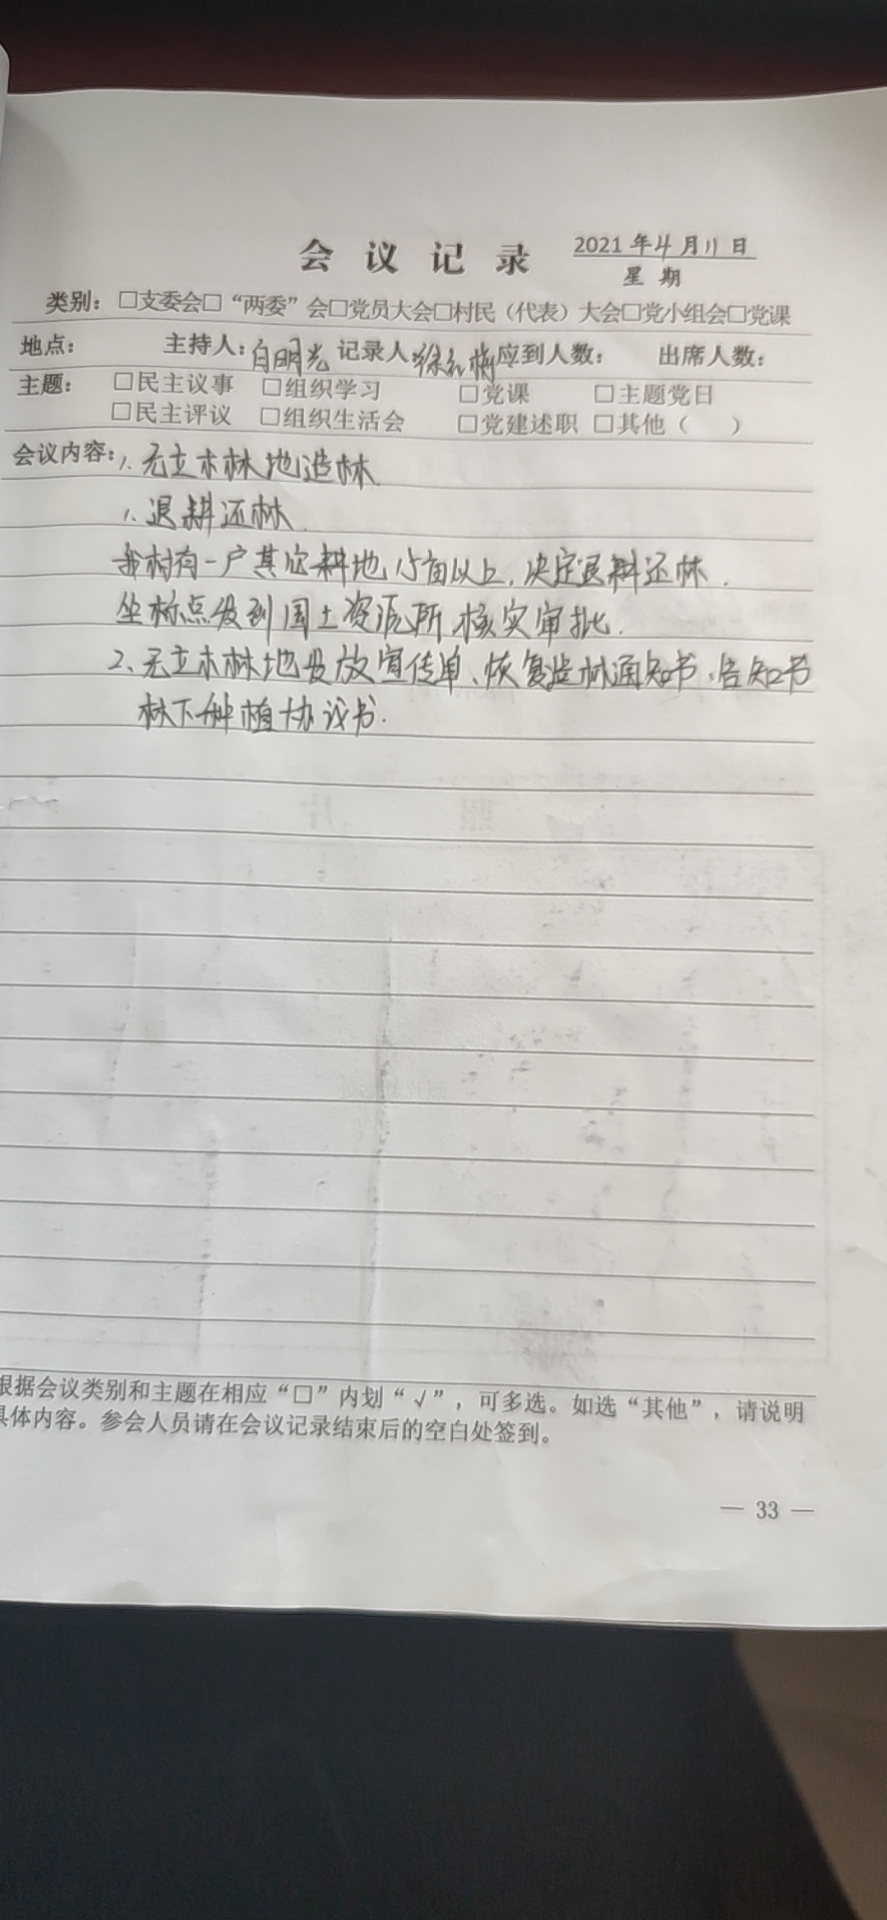 会议记录 2021年4月11日
星期
类别：□支委会□“两委”会□党员大会□村民（代表）大会□党小组会□党课
地点： 主持人：白明光 记录人 徐红梅 应到人数： 出席人数：
主题： □民主议事 □组织学习 □党课 □主题党日
□民主评议 □组织生活会 □党建述职 □其他（ ）
会议内容：1、无立木林地造林
1、退耕还林.
我村有一户其他耕地15亩以上，决定退耕还林.
坐标点发到国土资源所核实审批.
2、无立木林地发放宣传单、恢复造林通知书、告知书
林下种植协议书.
根据会议类别和主题在相应“□”内划“√”，可多选。如选“其他”，请说明
具体内容。参会人员请在会议记录结束后的空白处签到。
— 33 —